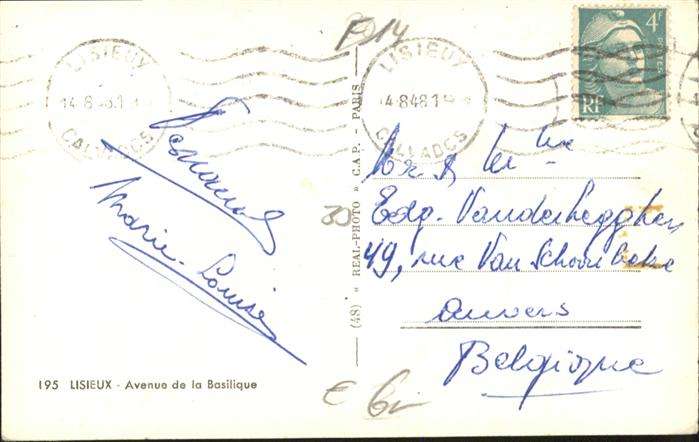 F 14
LISIEUX
14.8.48.1
CALVADOS
LISIEUX
14.8.48.1
CALVADOS
4F
POSTES
RF
Fernand
Marie-Louise
(48) « REAL-PHOTO » C.A.P. - PARIS
30
Mr & Mme
Edg. Vanderhegghen
49, rue Van Schoonbeke
Anvers
Belgique
195 LISIEUX - Avenue de la Basilique
€